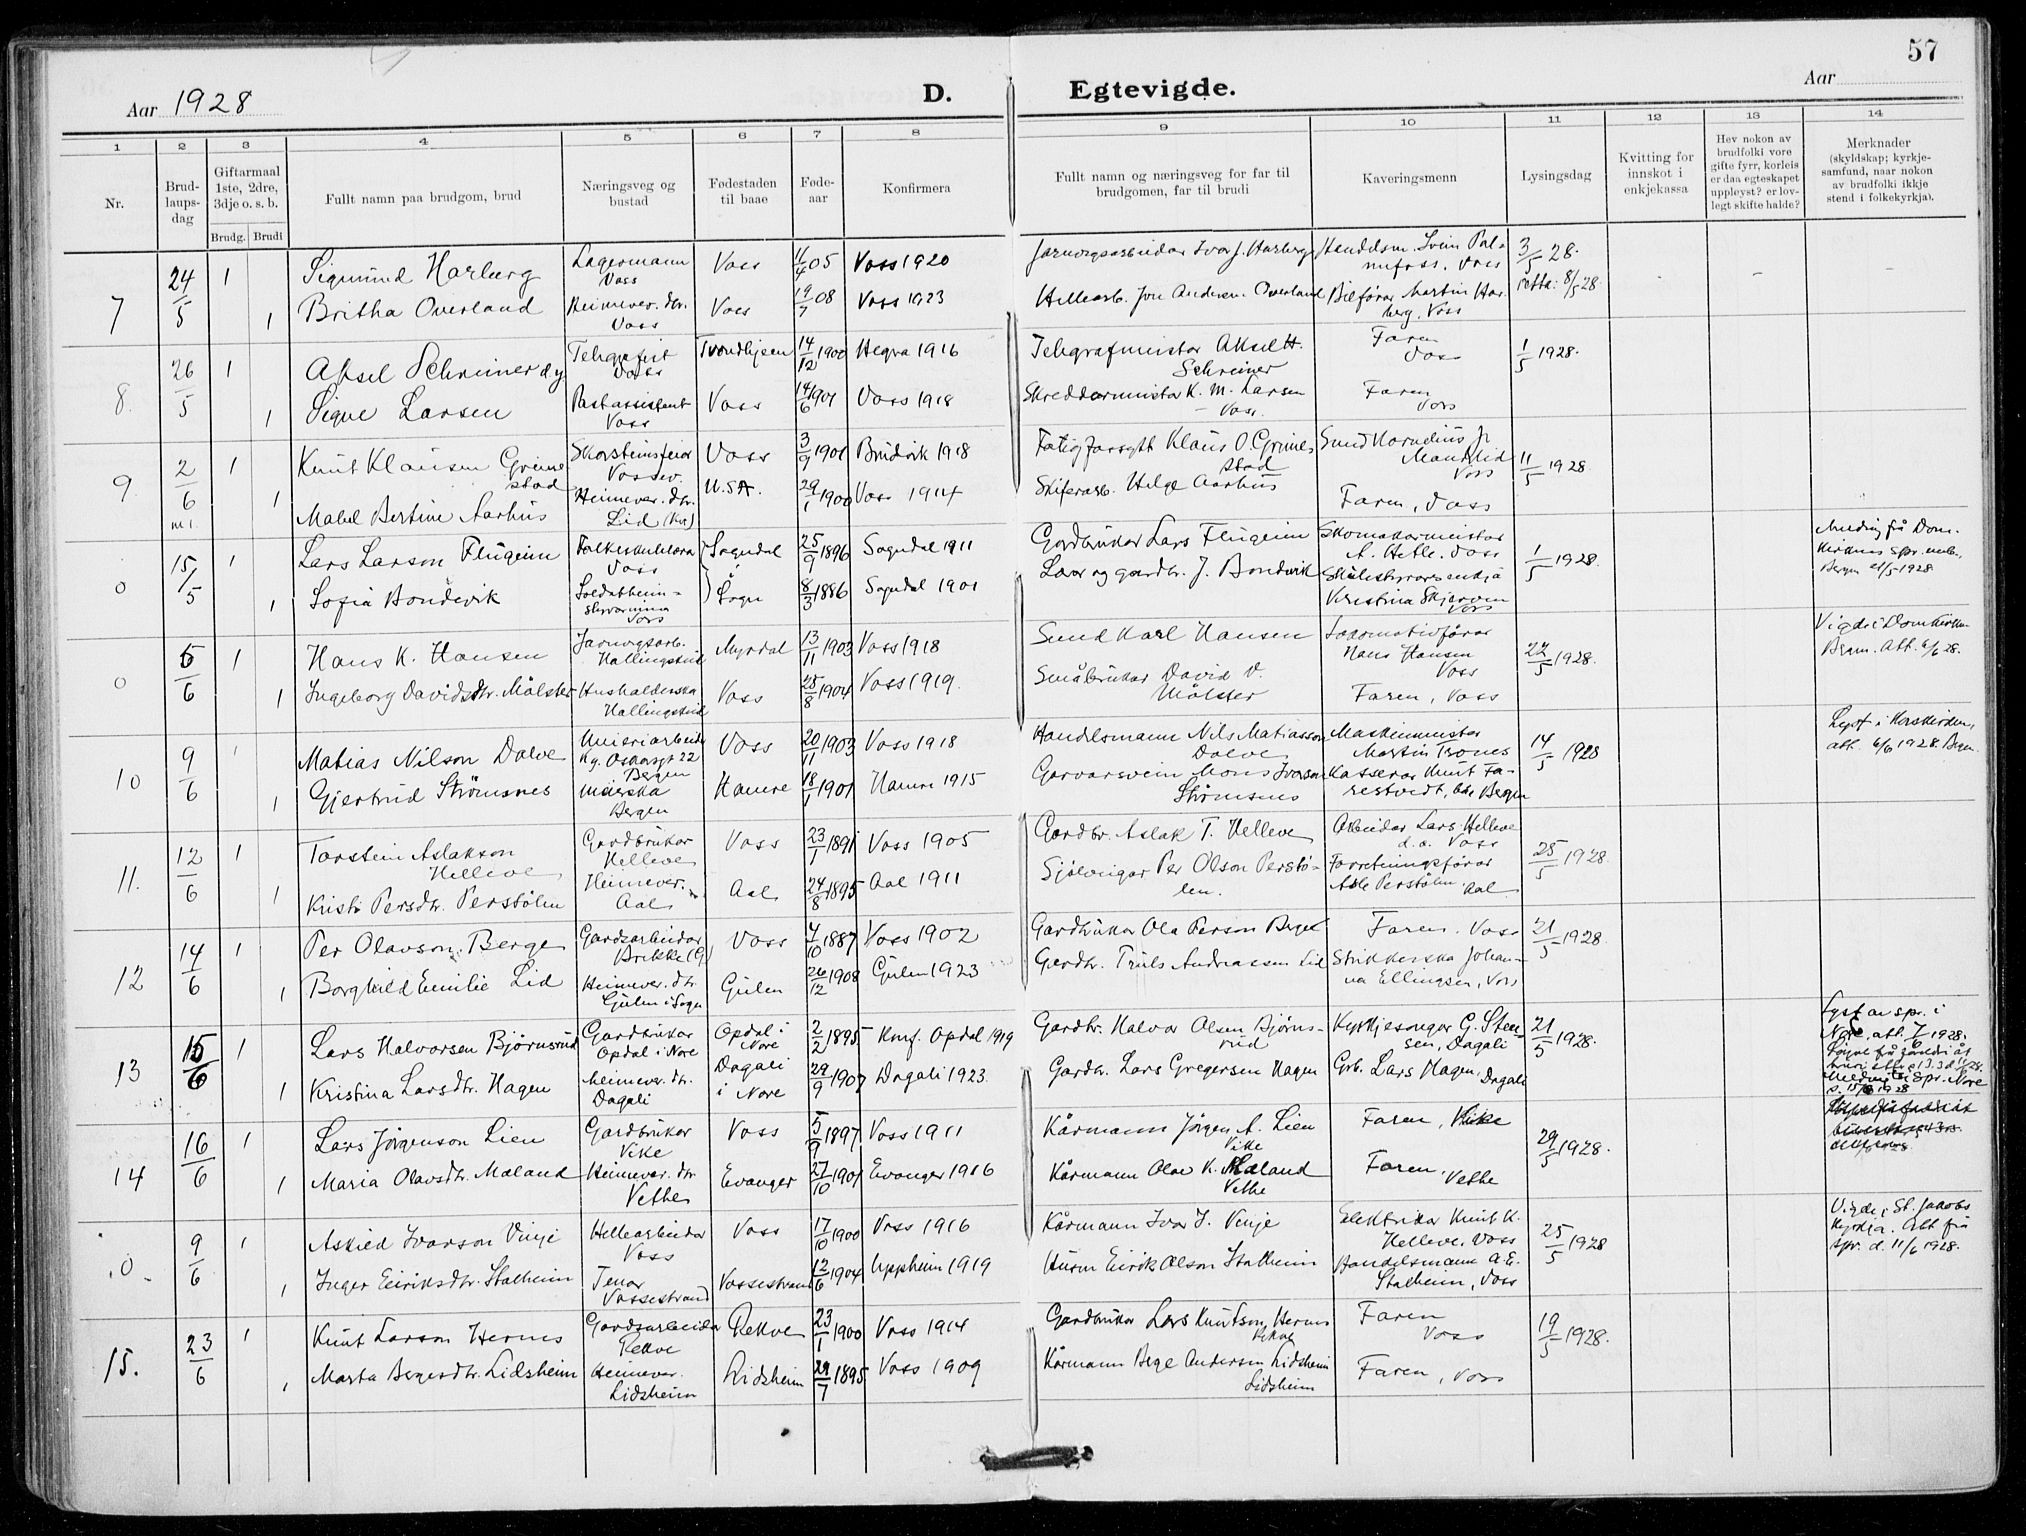 57
Aar 1928
D. Egtevigde.
Aar
1 2 3 4 5 6 7 8 9 10 11 12 13 14
Nr.
Brudlaupsdag
Giftarmaal 1ste, 2dre, 3dje o. s. b.
Brudg. Brudi
Fullt namn paa brudgom, brud
Næringsveg og bustad
Fødestaden til baae
Fødeaar
Konfirmera
Fullt namn og næringsveg for far til brudgomen, far til brudi
Kaveringsmenn
Lysingsdag
Kvitting for innskot i enkjekassa
Hev nokon av brudfolki vore gifte fyrr, korleis er daa egteskapet uppleyst? er lovlegt skifte halde?
Merknader (skyldskap; kyrkjesamfund, naar nokon av brudfolki ikkje stend i folkekyrkja).
7 24/5 1 Sigmund Harberg Lagermann Voss Voss 11/4 05 Voss 1920 Jarnvegsarbeidar Ivar J. Harberg Handelsm. Svein Palmefoss. Voss 3/5 28.
1 Britha Overland Heimever. dtr. Voss Voss 19/7 08 Voss 1923 Hellearb. Jon Anderson Overland Bilførar Martin Harberg. Voss retta: 8/5 28
8. 26/5 1 Aksel Schreiner d.y. Telegrafist Voss Trondhjem 14/12 1900 Hegra 1916 Telegrafmeistar Aksel H. Schreiner Faren Voss 1/5 1928.
1 Signe Larsen Postassistent Voss Voss 14/6 1901 Voss 1918 Skreddarmeistar K. M. Larsen Voss. Faren Voss
9 2/6 1 Knut Klausen Grimestad Skorsteinsfeiar Vossev. Voss 3/9 1901 Bruvik 1918 Fatigforsytt Klaus O. Grimestad Smed Kornelius Jr Mauklid Voss 11/5 1928.
1 Mabel Bertine Aarhus Heimever. dtr. Lid U.S.A. 29/1 1900 Voss 1914 Skiferarb. Helge Aarhus Faren, Voss
0 15/5 1 Lars Larson Flugeim Folkeskulelærar Voss Sogndal 25/9 1896 Sogndal 1911 Gardbrukar Lars Flugeim Skomakarmeistar A. Hetle. Voss 1/5 1928. Melding frå Domkirkens spr. emb. Bergen 21/5 1928
1 Sofia Bondevik Soldatheimstyrarinna Voss i Sogn 8/3 1886 Sogndal 1901 Lærar og gardbr. J. Bondevik Skulestyrarsenkja Kristina Skjerven Voss
0 5/6 1 Hans K. Hansen Jarnvegsarb. Hallingskeid Myrdal 13/11 1903 Voss 1918 Smed Karl Hansen Lokomotivførar Hans Hansen Voss 22/5 1928. Vigde i Domkirken Bergen. Att. 6/6 28.
1 Ingeborg Davidsdtr. Mølster Hushalderska Hallingskeid Voss 28/8 1904 Voss 1919. Småbrukar David V. Mølster Faren, Voss
10 9/6 1 Matias Nilson Dalve Meieriarbeidar Kg. Oskarsgt 22 Bergen Voss 20/11 1903 Voss 1918 Handelsmann Nils Matiasson Dalve Maskinmeistar Martin Trones 14/5 1928 Lyst i Korskirken, att. 6/6 1928. Bergen
1 Gjertrud Strømsnes meierska Bergen Hamre 18/1 1901 Hamre 1915 Garvarsvein Mons Ivarson Strømsnes Kasserar Knut Farestvedt, Bergen
11. 12/6 1 Torstein Aslakson Helleve Gardbrukar Helleve Voss 23/1 1891 Voss 1905 Gardbr. Aslak T. Helleve Arbeidar Lars Helleve d.a. Voss 25/5 1928.
1 Kristi Persdtr. Perstølen Heimever. Aal Aal 24/8 1895 Aal 1911 Sjølveigar Per Olson Perstølen. Forretningsførar Asle Perstølen. Aal
12 14/6 1 Per Olavson Berge Gardsarbeidar Brekke (G) Voss 7/10 1887 Voss 1902 Gardbrukar Ola Person Berge Faren. Voss 21/5 1928.
1 Borghild Emilie Lid Heimever. dtr. Gulen i Sogn Gulen 26/12 1908 Gulen 1923 Gardbr. Truls Andreassen Lid Strikkerska Johanna Ellingsen, Voss
13 15/6 1 Lars Halvorsen Bjørnsrud Gardbrukar Opdal i Nore Opdal i Nore 2/2 1895 Konf. Opdal 1919 Gardbr. Halvor Olsen Bjørnsrud Kyrkjesongar G. Steensen, Dagali 21/5 1928. Lyst av spr. i Nore, att. 7/6 1928.
1 Kristina Larsdtr. Hagen Heimever. dtr. Dagali Dagali i Nore 29/9 1907 Dagali 1923. Gardbr. Lars Gregersen Hagen Grb. Lars Hagen, Dagali
14 16/6 1 Lars Jørgenson Lien Gardbrukar Vike Voss 5/9 1897 Voss 1911 Kårmann Jørgen A. Lien Vike Faren, Vike 29/5 1928.
1 Maria Olavsdtr. Maland Heimever. dtr Vethe Evanger 27/10 1901 Evanger 1916 Kårmann Olav K. Maland Vethe Faren. Vethe
0 9/6 1 Askild Ivarson Vinje Hellearbeidar Voss Voss 17/10 1900 Voss 1916 Kårmann Ivar J. Vinje Elektrikar Knut K. Helleve. Voss 25/5 1928 Vigde i St. Jakobs kyrkja. Att frå spr. d. 11/6 1928.
1 Inger Eiriksdtr. Stalheim Tenar Vossestrand Vossestrand 12/6 1904 Uppheim 1919 Husm Eirik Olson Stalheim Handelsmann A. E. Stalheim, Voss
15. 23/6 1 Knut Larson Hernes Gardsarbeidar Rekve Rekve 23/1 1900 Voss 1914 Gardbrukar Lars Knutson Hernes Rekve Faren Voss 19/5 1928.
1 Marta Bergesdtr. Lidsheim Heimever. Lidsheim Lidsheim 29/7 1895 Voss 1909 Kårmann Berge Anderson Lidsheim Lidsheim Faren, Voss